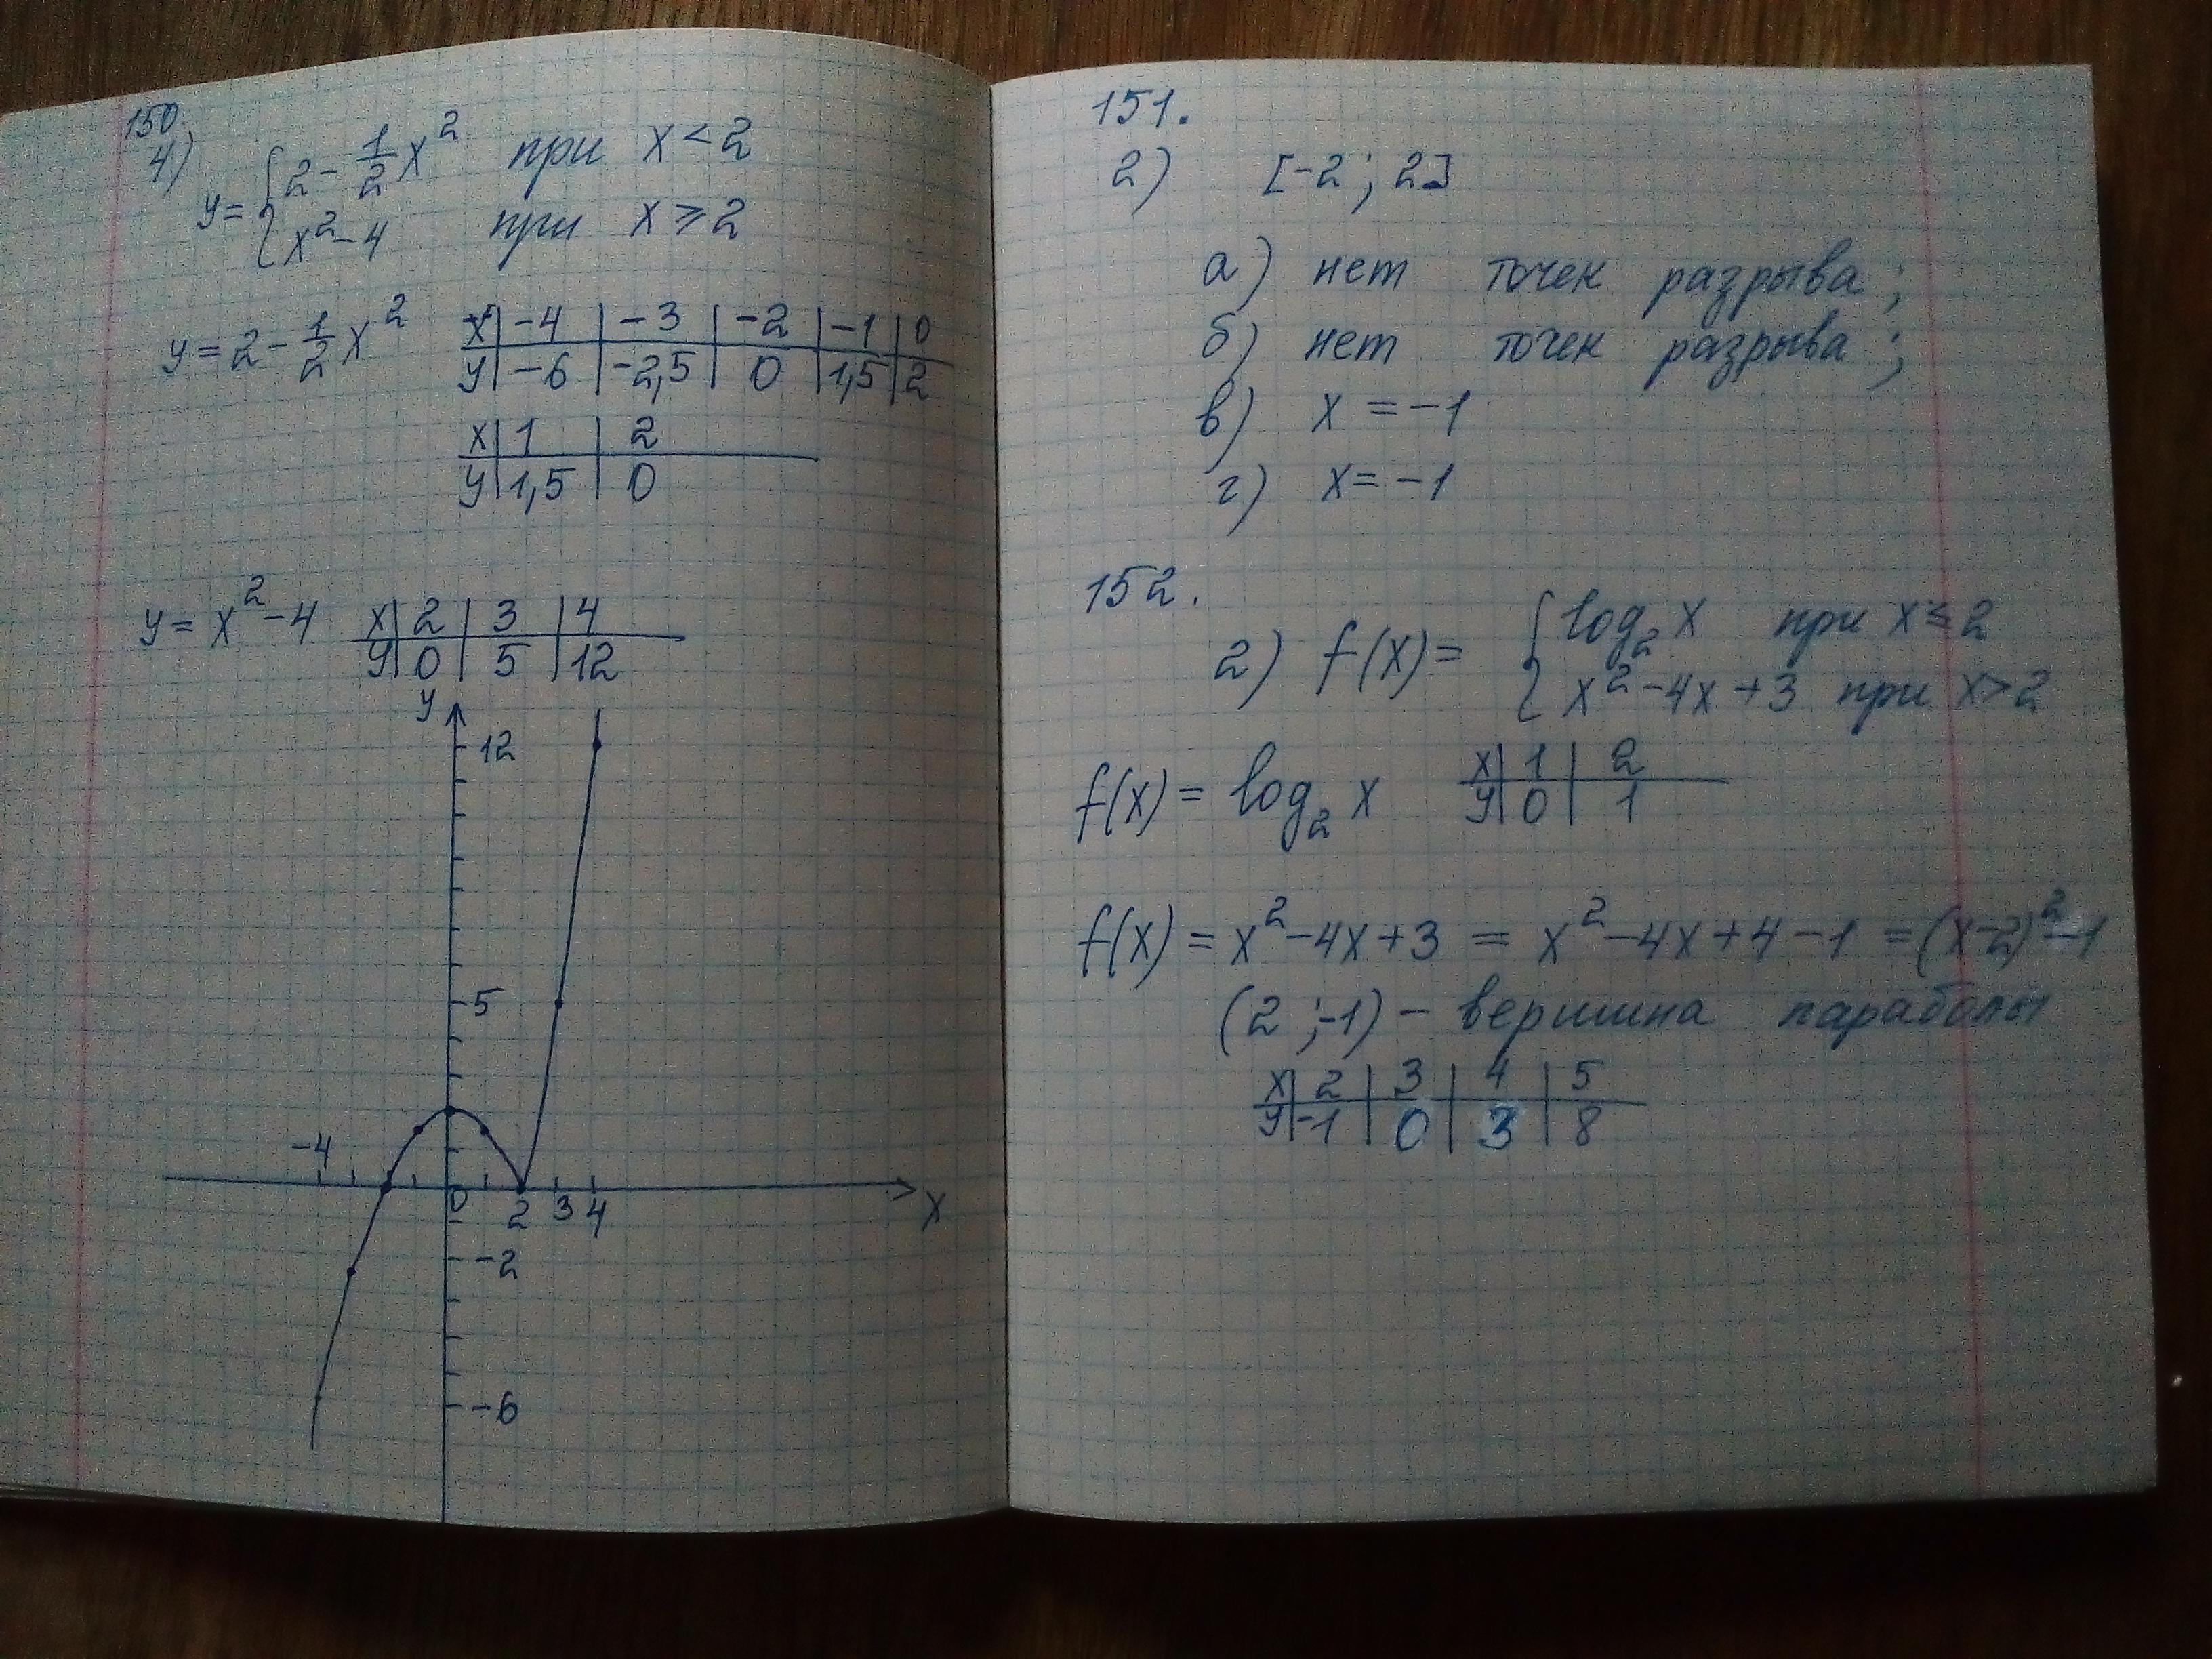 150.
4) y = { 2 - 1/2 x² при x < 2
x² - 4 при x ≥ 2
y = 2 - 1/2 x²
x | -4 | -3 | -2 | -1 | 0
y | -6 | -2,5 | 0 | 1,5 | 2
x | 1 | 2
y | 1,5 | 0
y = x² - 4
x | 2 | 3 | 4
y | 0 | 5 | 12
y
12
5
-4
0 2 3 4 x
-2
-6
151.
2) [-2; 2]
а) нет точек разрыва;
б) нет точек разрыва;
в) x = -1
г) x = -1
152.
2) f(x) = { log₂ x при x ≤ 2
x² - 4x + 3 при x > 2
f(x) = log₂ x
x | 1 | 2
y | 0 | 1
f(x) = x² - 4x + 3 = x² - 4x + 4 - 1 = (x-2)² - 1
(2; -1) - вершина параболы
x | 2 | 3 | 4 | 5
y | -1 | 0 | 3 | 8